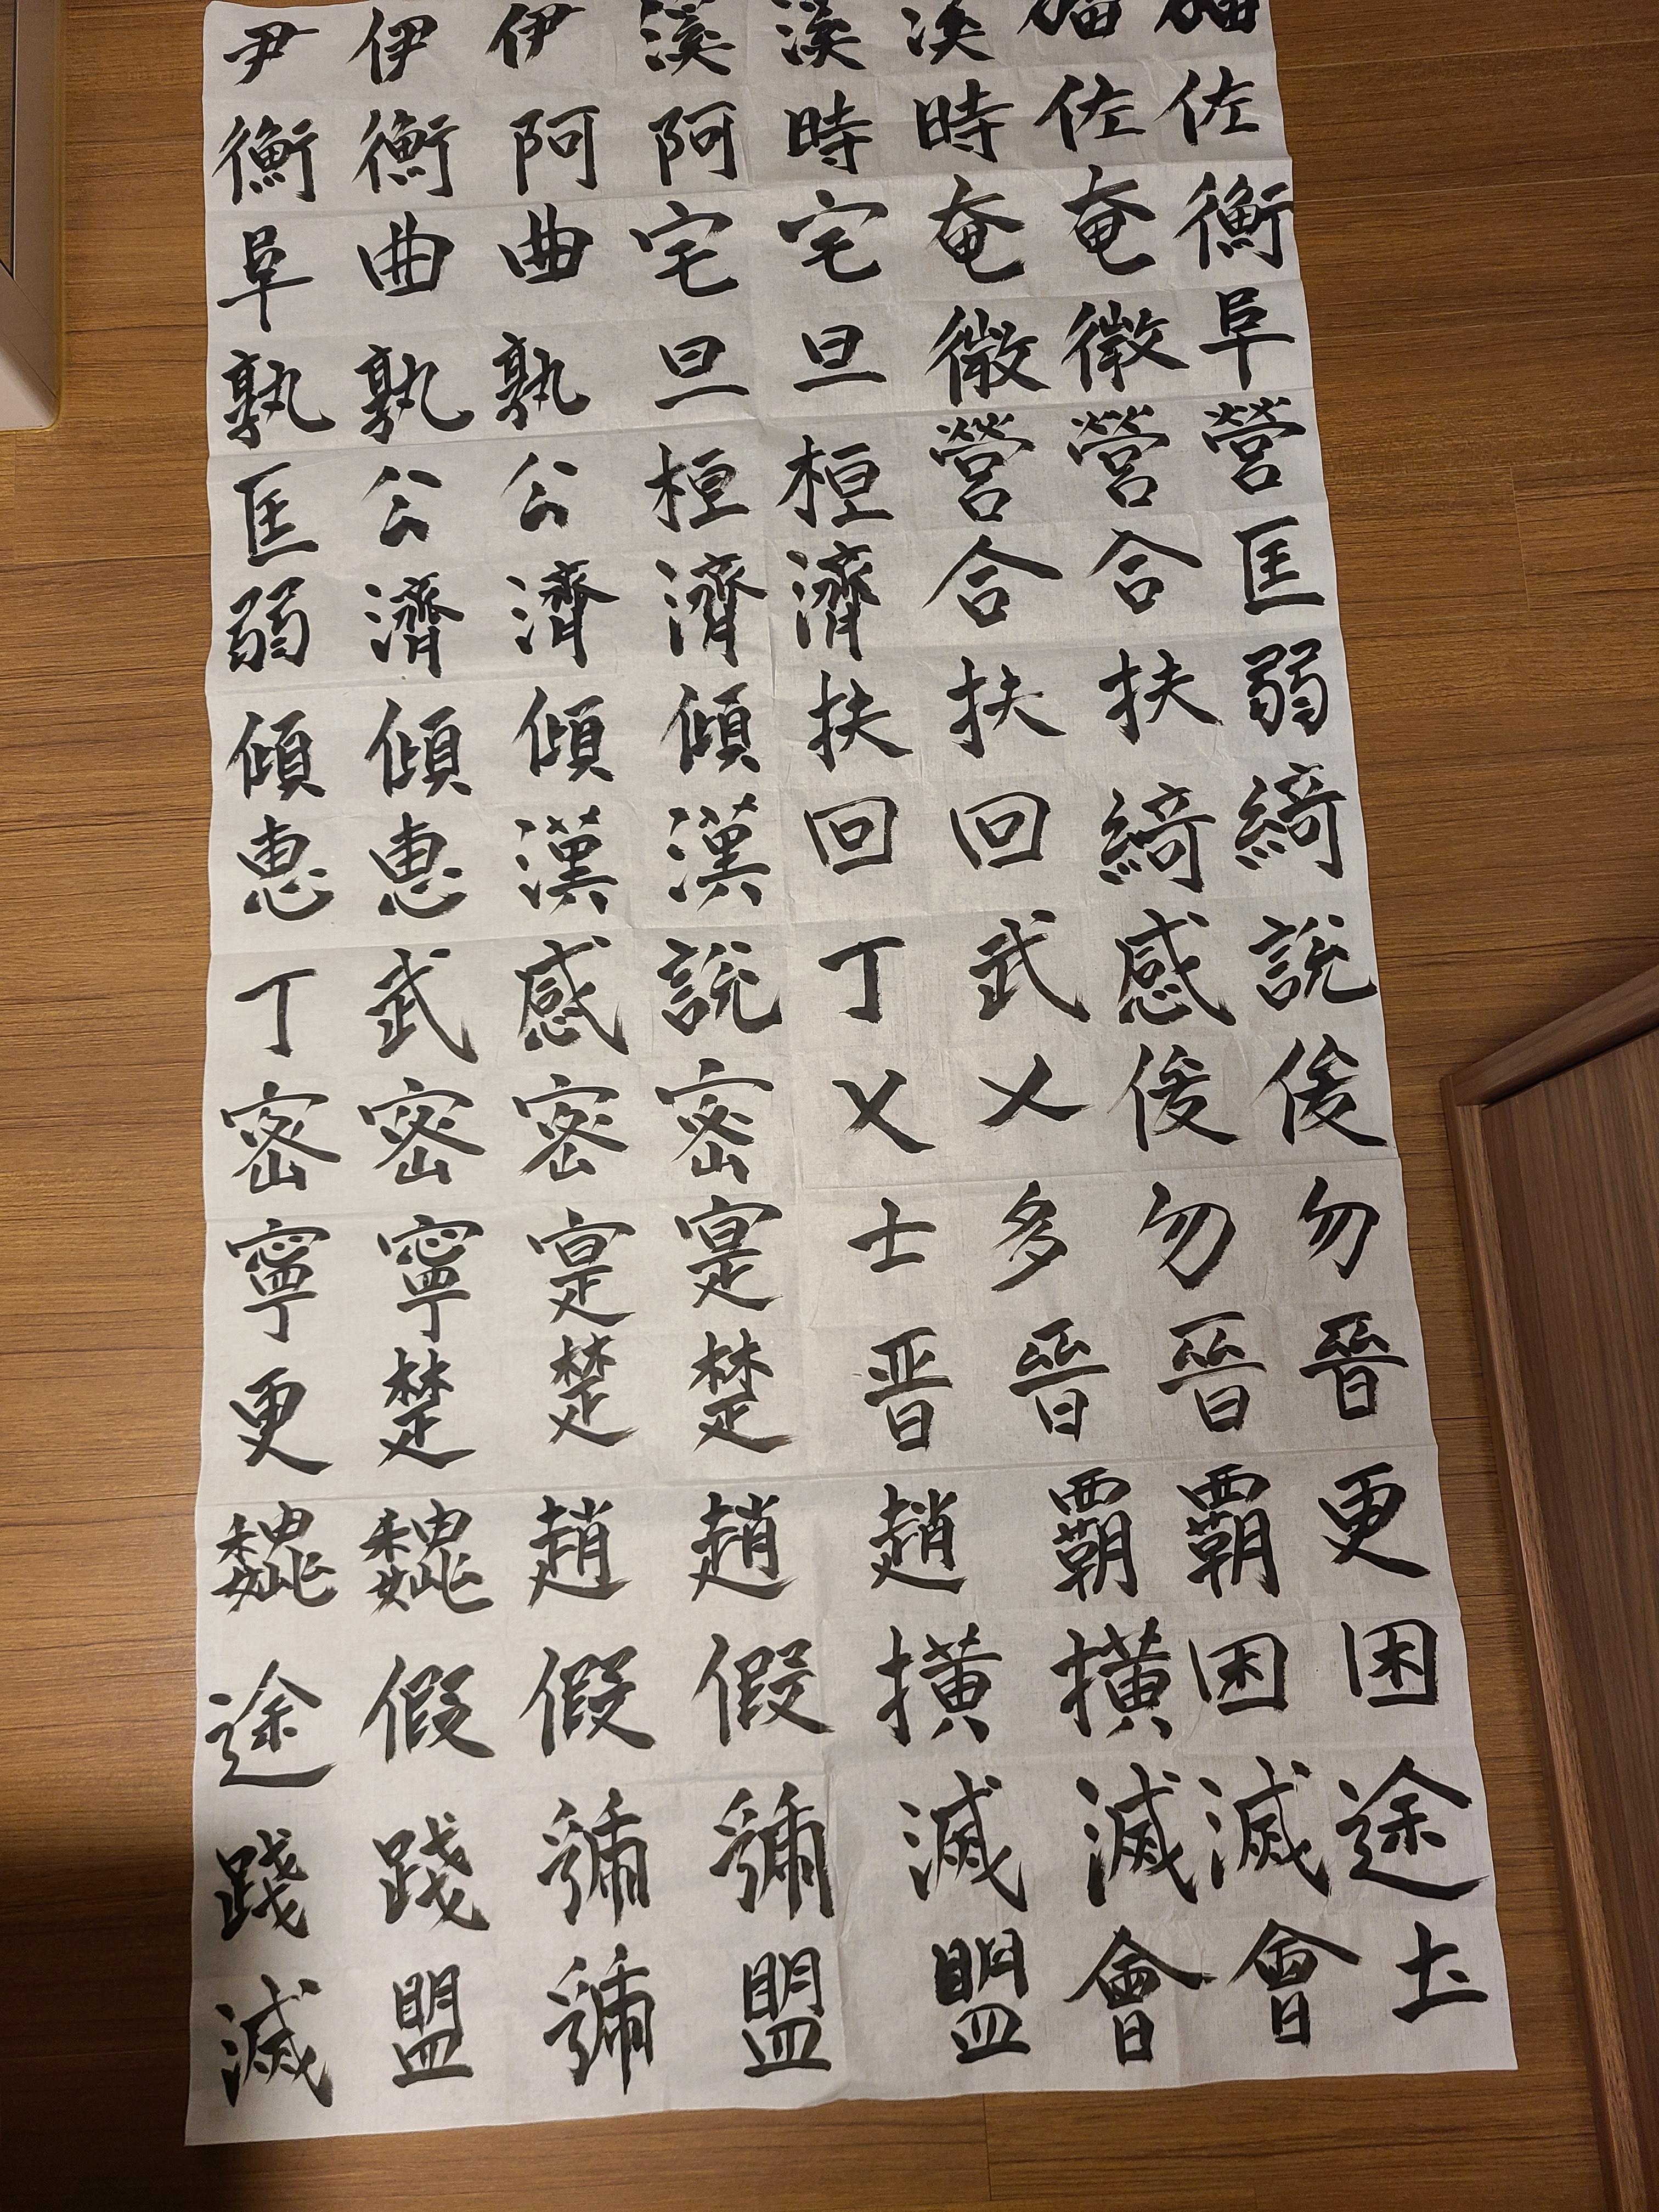 溪溪溪伊伊尹
佐佐時時阿阿衡衡
衡奄奄宅宅曲曲阜
阜微微旦旦孰孰孰
營營營桓桓公公匡
匡合合濟濟濟濟弱
弱扶扶扶傾傾傾傾
綺綺回回漢漢恵恵
說感武丁說感武丁
俊俊乂乂密密密密
勿勿多士寔寔寧寧
晉晉晉晋楚楚楚更
更霸霸趙趙趙魏魏
困困橫橫假假假途
途滅滅滅虢虢踐踐
土會會盟盟虢盟滅